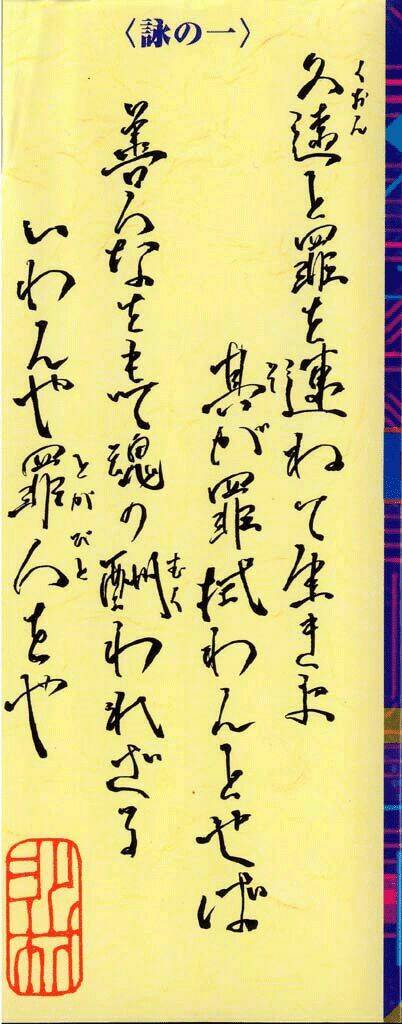 〈詠の一〉
久遠と罪を連ねて生きま
くおん
其が罪拭わんとせば
そ
善人なをもて魂の酬われざる
むく
いわんや罪人をや
とがびと